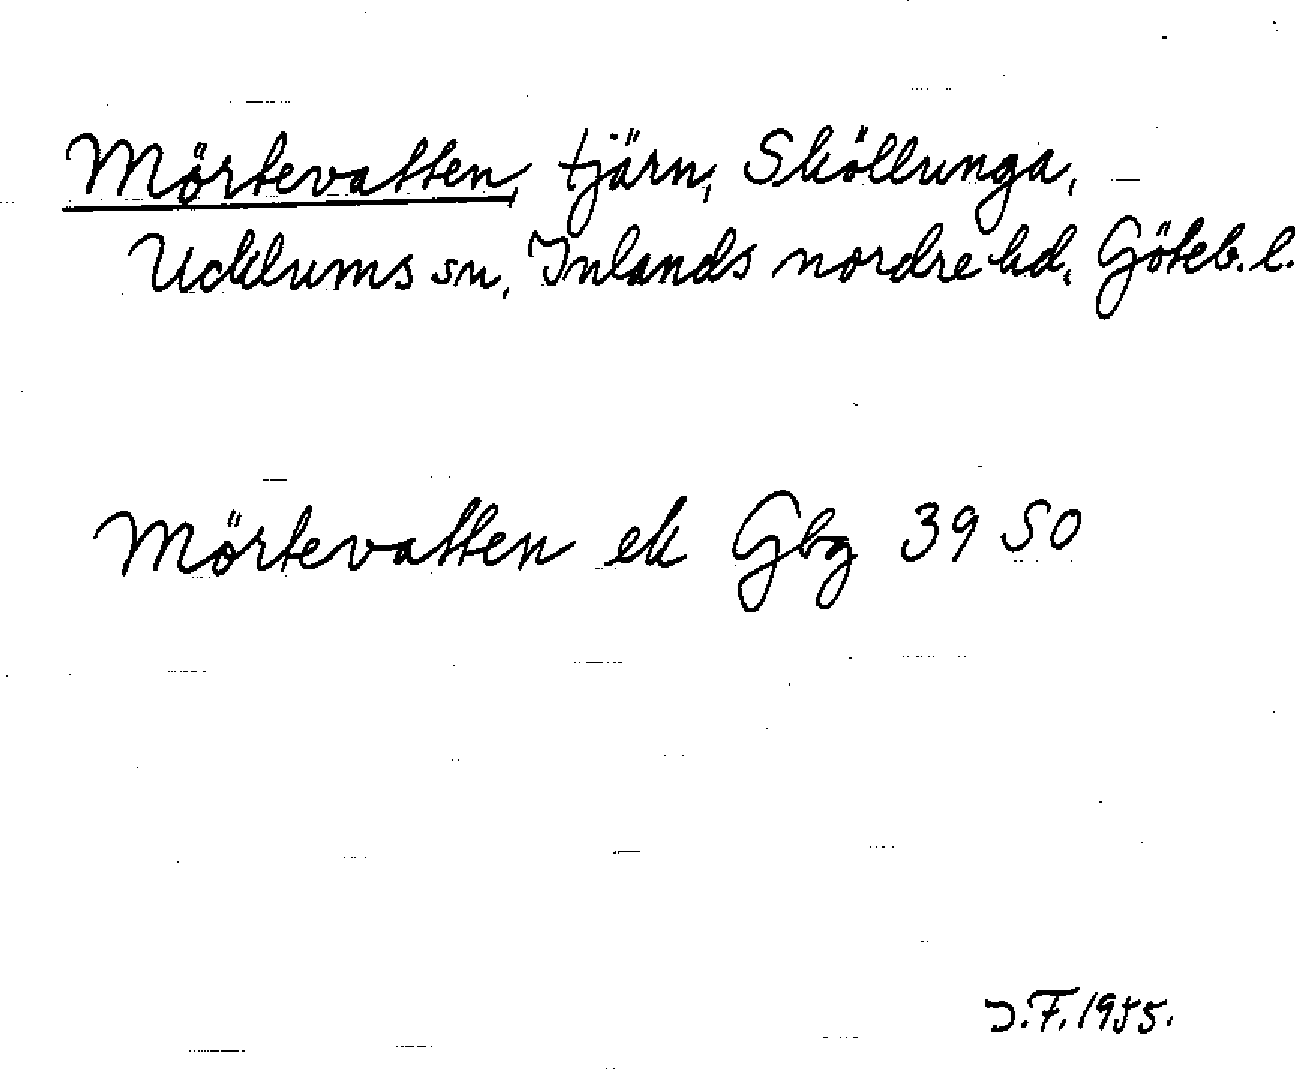 Mörtevatten, tjärn, Sköllunga,
Ucklums sn, Inlands nordre hd, Göteb. l.
Mörtevatten ek Gbg 39 50
J.F. 1955.